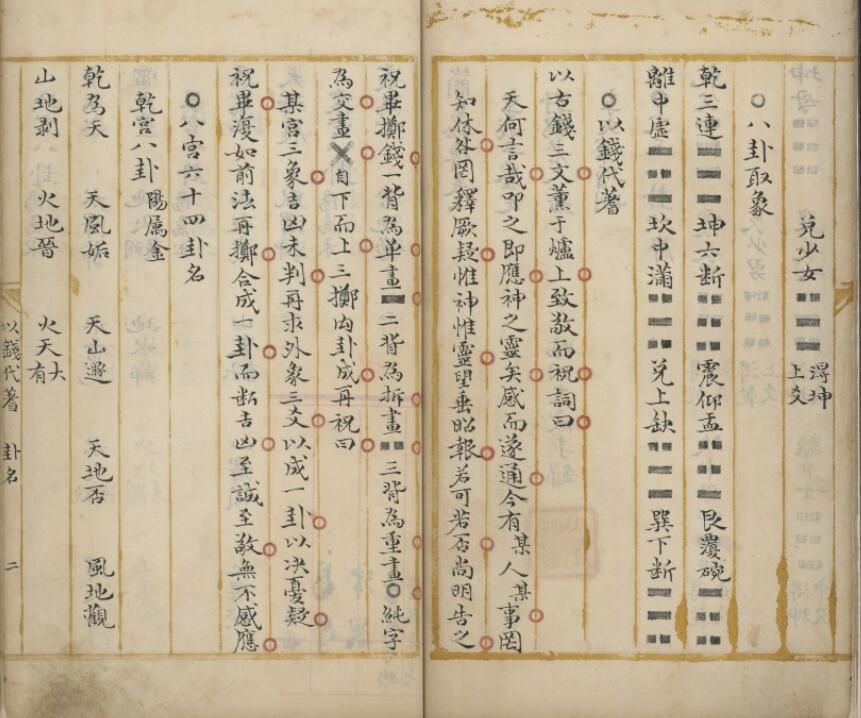 兌少女☱得坤上爻
○八卦取象
乾三連☰坤六断☷震仰盂☳艮覆碗☶
離中虛☲坎中滿☵兌上缺☱巽下断☴
○以錢代蓍
以古錢三文薰于爐上致敬而祝詞曰
天何言哉叩之即應神之靈矣感而遂通今有某人某事罔
知休咎罔釋厥疑惟神惟靈望垂昭報若可若否尚明告之
祝畢擲錢一背為单畫⚊二背為拆畫⚋三背為重畫○純字
為交畫╳自下而上三擲內卦成再祝曰
某宮三象吉凶未判再求外象三爻以成一卦以决憂疑
祝畢復如前法再擲合成一卦而断吉凶至誠至敬無不感應
○八宮六十四卦名
乾宮八卦陽属金
乾為天 天風姤 天山遯 天地否 風地觀
山地剥 火地晉 火天大有
以錢代蓍 卦名 二